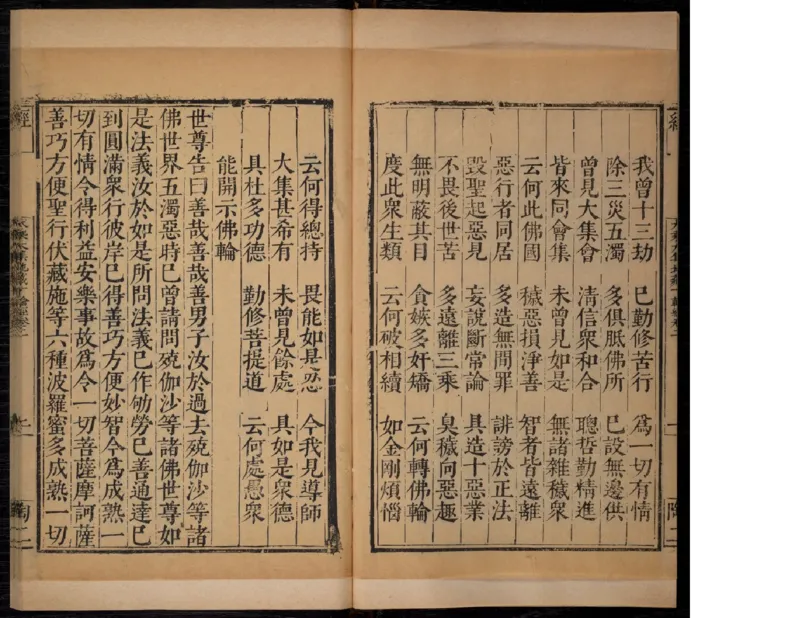 我曾十三劫　已勤修苦行　為一切有情
除三災五濁　多俱胝佛所　已設無邊供
曾見大集會　清信眾和合　聰哲勤精進
皆來同會集　未曾見如是　無諸雜穢眾
云何此佛國　穢惡損淨善　智者皆遠離
惡行者同居　多造無間罪　誹謗於正法
毀聖起惡見　妄說斷常論　具造十惡業
不畏後世苦　多遠離三乘　臭穢向惡趣
無明蔽其目　貪嫉多奸矯　云何轉佛輪
度此眾生類　云何破相續　如金剛煩惱
云何得總持　畏能如是忍　今我見導師
大集甚希有　未曾見餘處　具如是眾德
具杜多功德　勤修菩提道　云何處愚眾
能開示佛輪
世尊告曰善哉善哉善男子汝於過去殑伽沙等諸
佛世界五濁惡時已曾請問殑伽沙等諸佛世尊如
是法義汝於如是所問法義已作劬勞已善通達已
到圓滿眾行彼岸已得善巧方便妙智今為成熟一
切有情令得利益安樂事故為令一切菩薩摩訶薩
善巧方便聖行伏藏施等六種波羅蜜多成熟一切